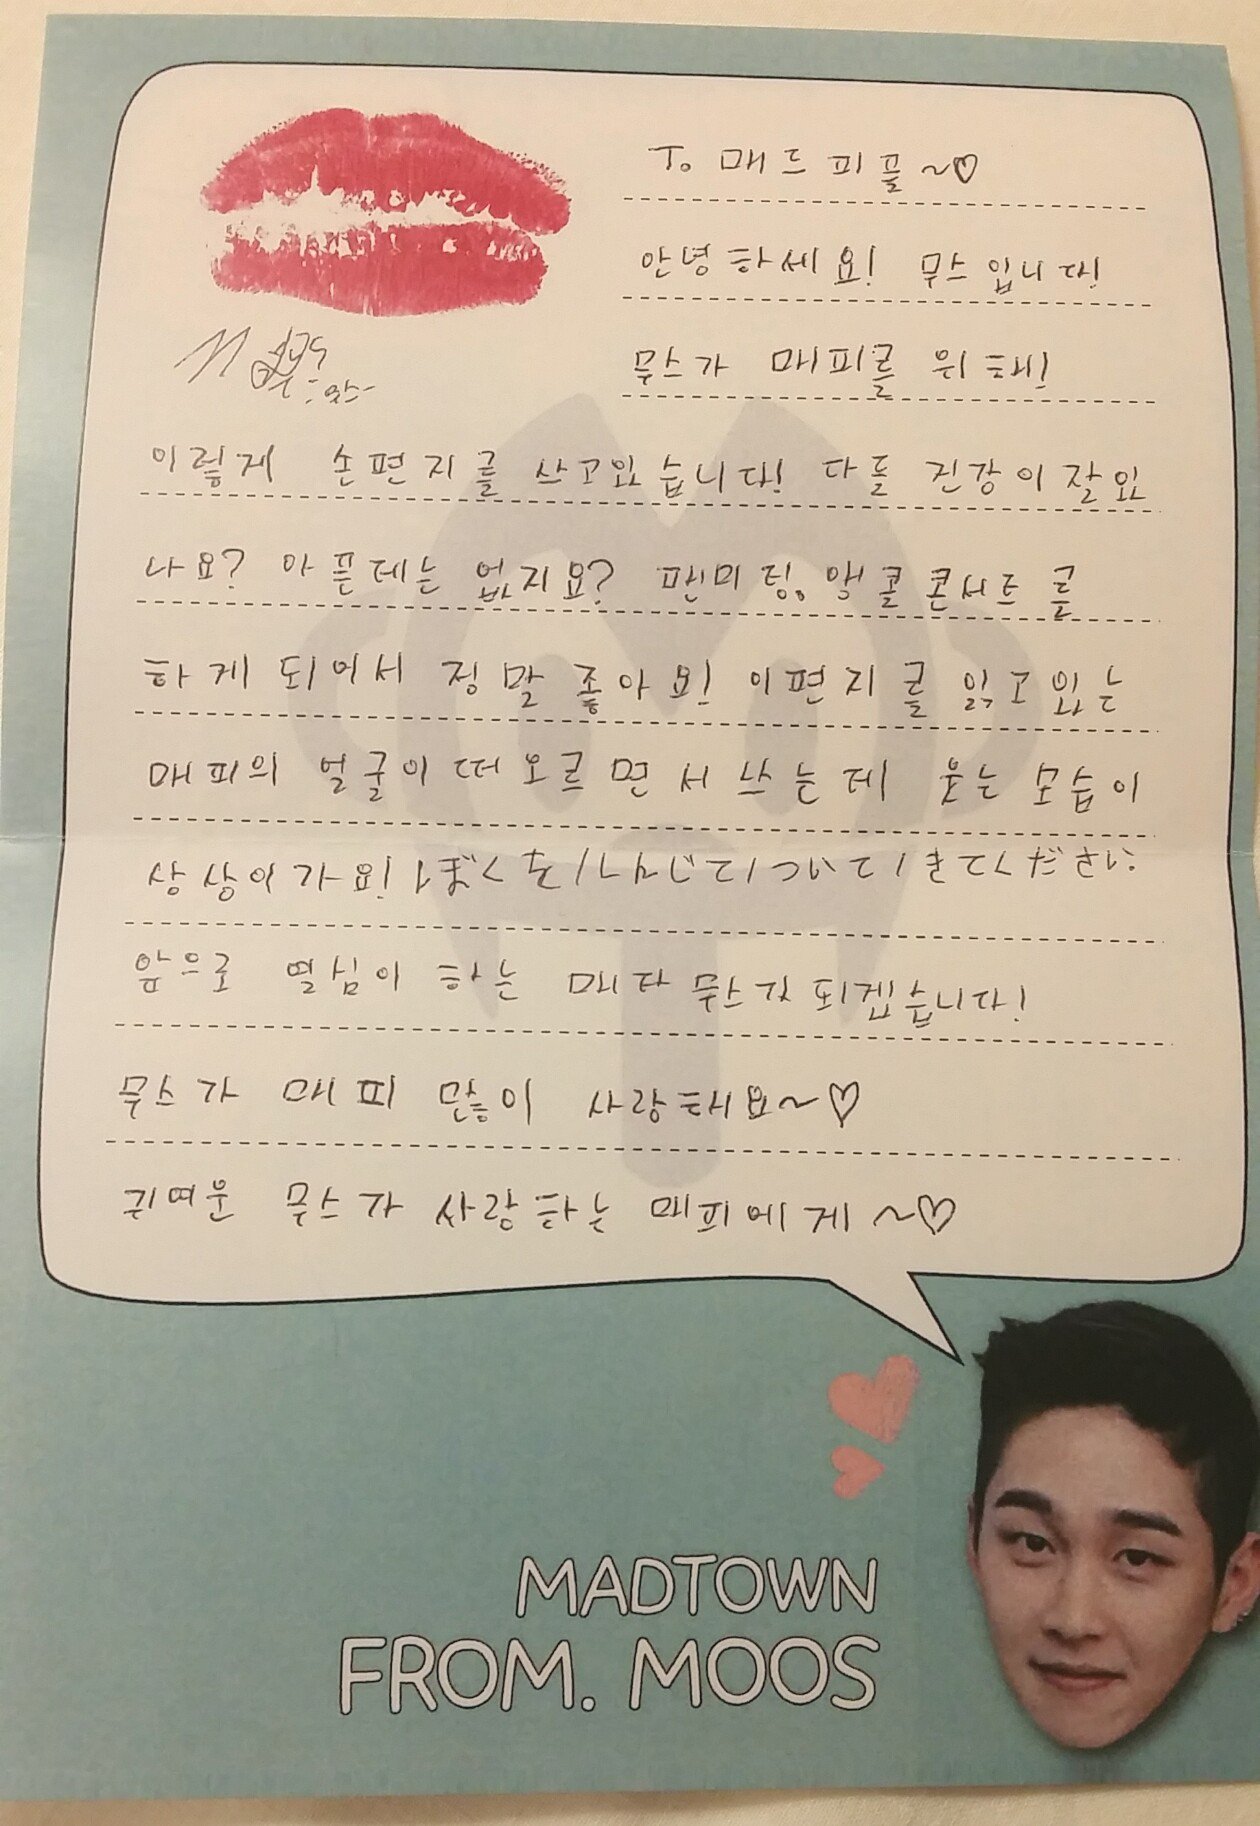 To 매드피플~♡
안녕하세요! 무스입니다!
무스가 매피를 위해!
이렇게 손편지를 쓰고있습니다! 다들 건강이 잘있
나요? 아픈데는 없지요? 팬미팅, 앵콜콘서트를
하게 되어서 정말 좋아요! 이편지를 읽고있는
매피의 얼굴이 떠오르면서 쓰는데 웃는 모습이
상상이가요! ついてきてください
앞으로 열심이 하는 매타무스가 되겠습니다!
무스가 매피 많이 사랑해요~♡
귀여운 무스가 사랑하는 매피에게~♡
MADTOWN
FROM. MOOS